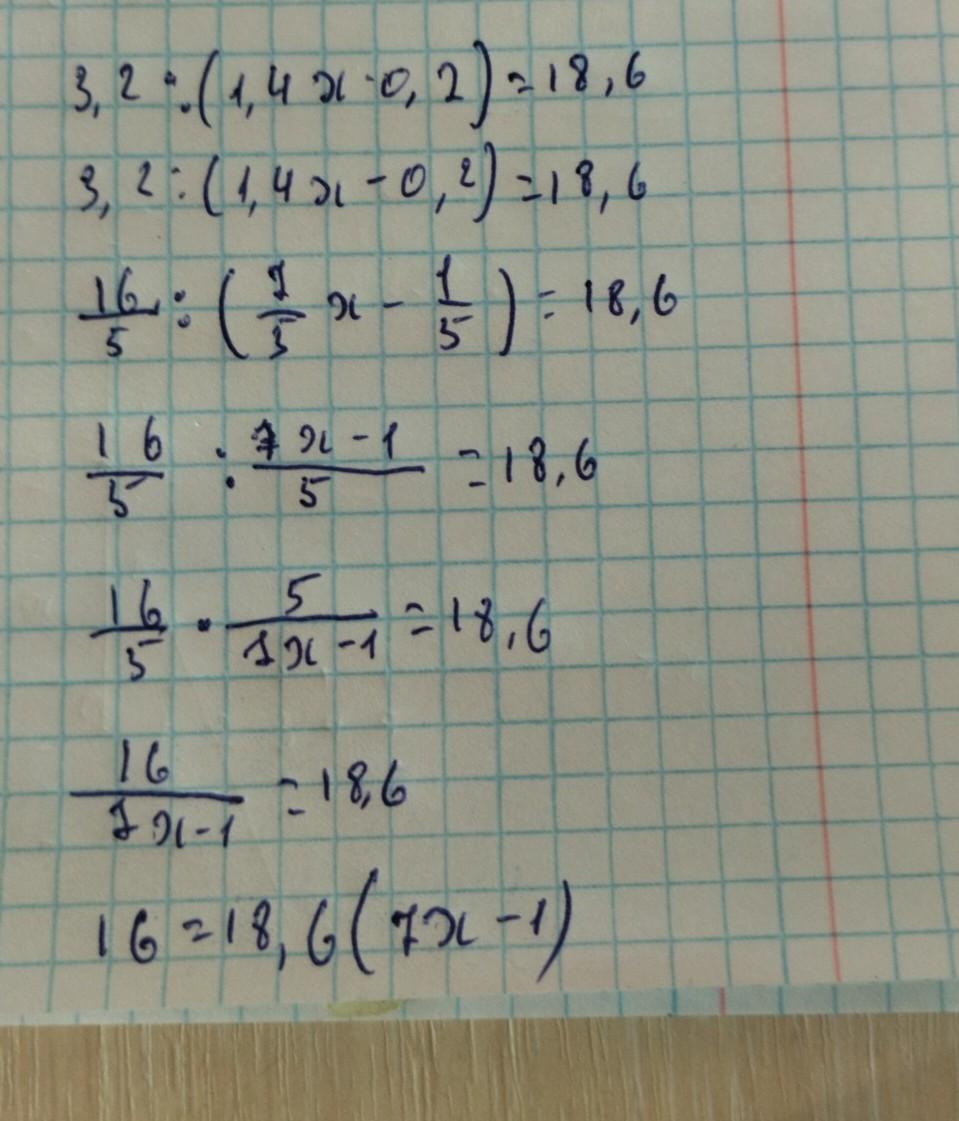 3,2 : (1,4x-0,2)=18,6
3,2:(1,4x-0,2)=18,6
16/5 : (7/5 x - 1/5) = 18,6
16/5 : 7x-1/5 = 18,6
16/5 · 5/7x-1 = 18,6
16/7x-1 = 18,6
16=18,6(7x-1)